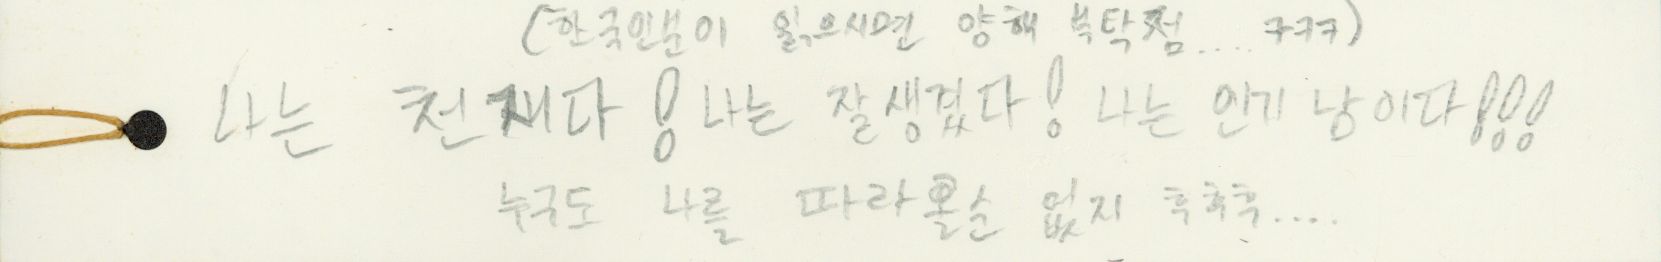 (한국인분이 읽으시면 양해 부탁점.... ㅋㅋㅋ)
나는 천재다! 나는 잘생겼다! 나는 인기 남이다!!!
누구도 나를 따라올순 없지 후후후....